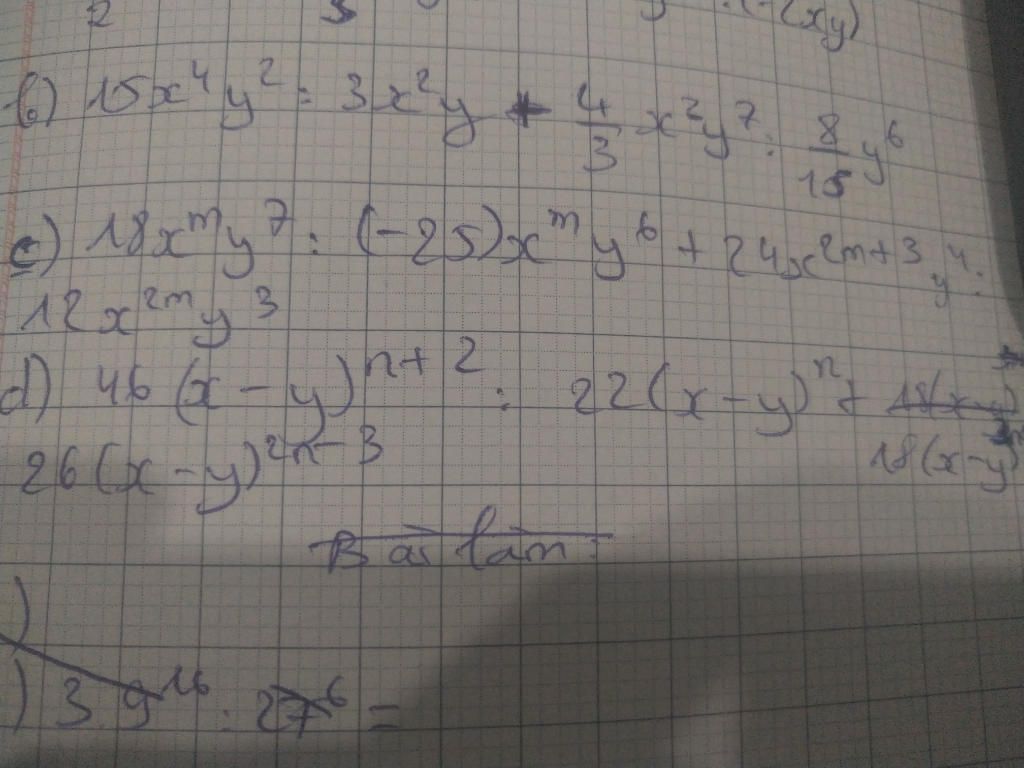 :(-2xy)
b) 15x⁴y² : 3x²y + 4/3 x²y⁷ : 8/15 y⁶
c) 18xᵐy⁷ : (-25)xᵐy⁶ + 24x²ᵐ⁺³y⁴ :
12x²ᵐy³
d) 46(x-y)ⁿ⁺² : 22(x-y)ⁿ +
18(x-y)
26(x-y)²ⁿ⁻³
Bài làm:
) 3.9¹⁶ : 27⁶ =